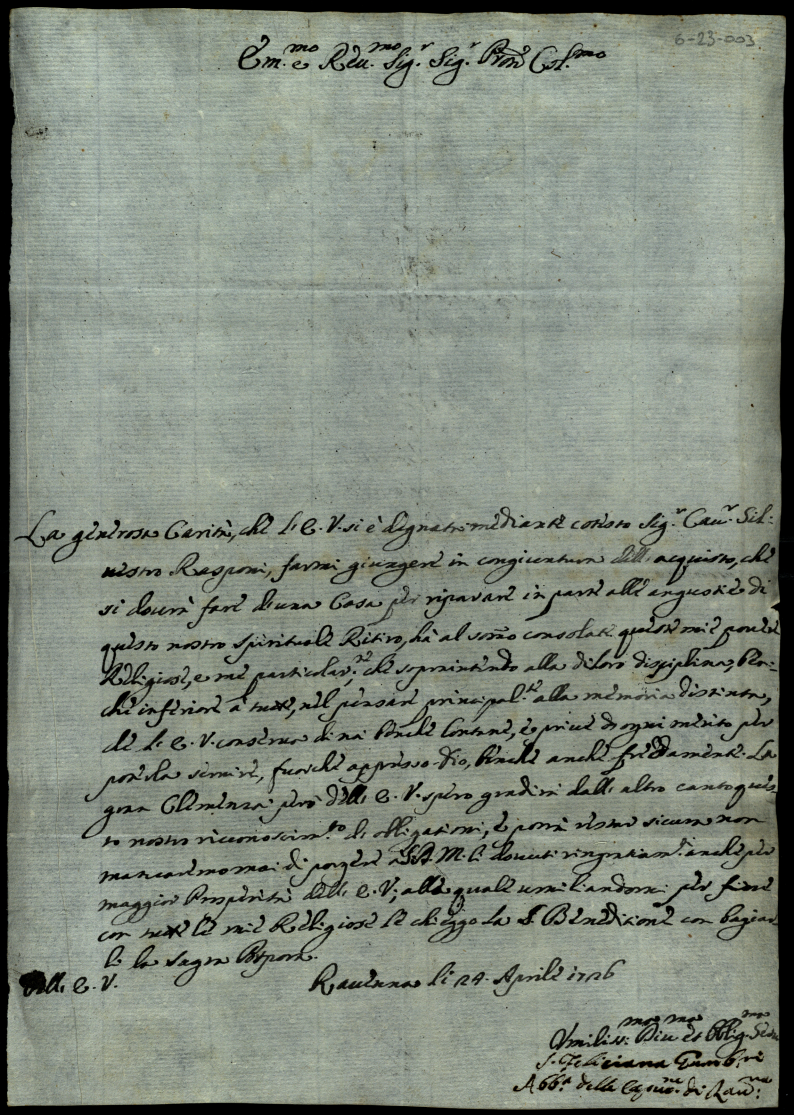 6-23-003
Em.mo e Reu.mo Sig.r Sig.r Pron Col.mo
La generosa Carità, che l'E. V. si è degnata mediante cotesto Sig.r Cau.r Sil-
uestro Rasponi, farmi giungere in congiuntura dell'acquisto, che
si dourà fare di una Casa per riparare in parte alle angustie di
questo nostro spirituale Ritiro, hà al somo consolate queste mie pouere
Religiose, e me particolar.te che soprintendo alla di loro disciplina, ben-
che inferiore à tutte, nel pensare principal.te alla memoria distinta,
che l'E. V. conserua di noi benche lontane, e priue di ogni merito per
poterla seruire, fuorche appresso Dio, benche anche freddamente. La
gran Clemenza però dell'E. V. spero gradirà dall'altro canto ques-
to nostro riconoscim.to di obligationi, e potrà restar sicura non
mancaremo mai di porgere à S.D.M. li douuti ringratiam.ti anche per
maggior Prosperità dell'E. V.; alla quale umiliandomi per fine
con tutte le mie Religiose le chieggo la S. Benedittione con bagiar
le la Sagra Porpora.
Dell'E. V. Rauenna li 24. Aprile 1726
Vmiliss.ma Diu.ma et Obblig.ma Serua
S. Feliciana
Abb.a delle Capuc.ne di Rau.na